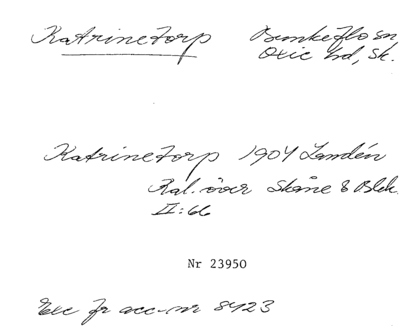 Katrinetorp Bunkeflo sn
Oxie hd, Sk.
Katrinetorp 1904 Landén
Ral. över Skåne & Blek.
II:66
Nr 23950
Exc fr acc-nr 8423